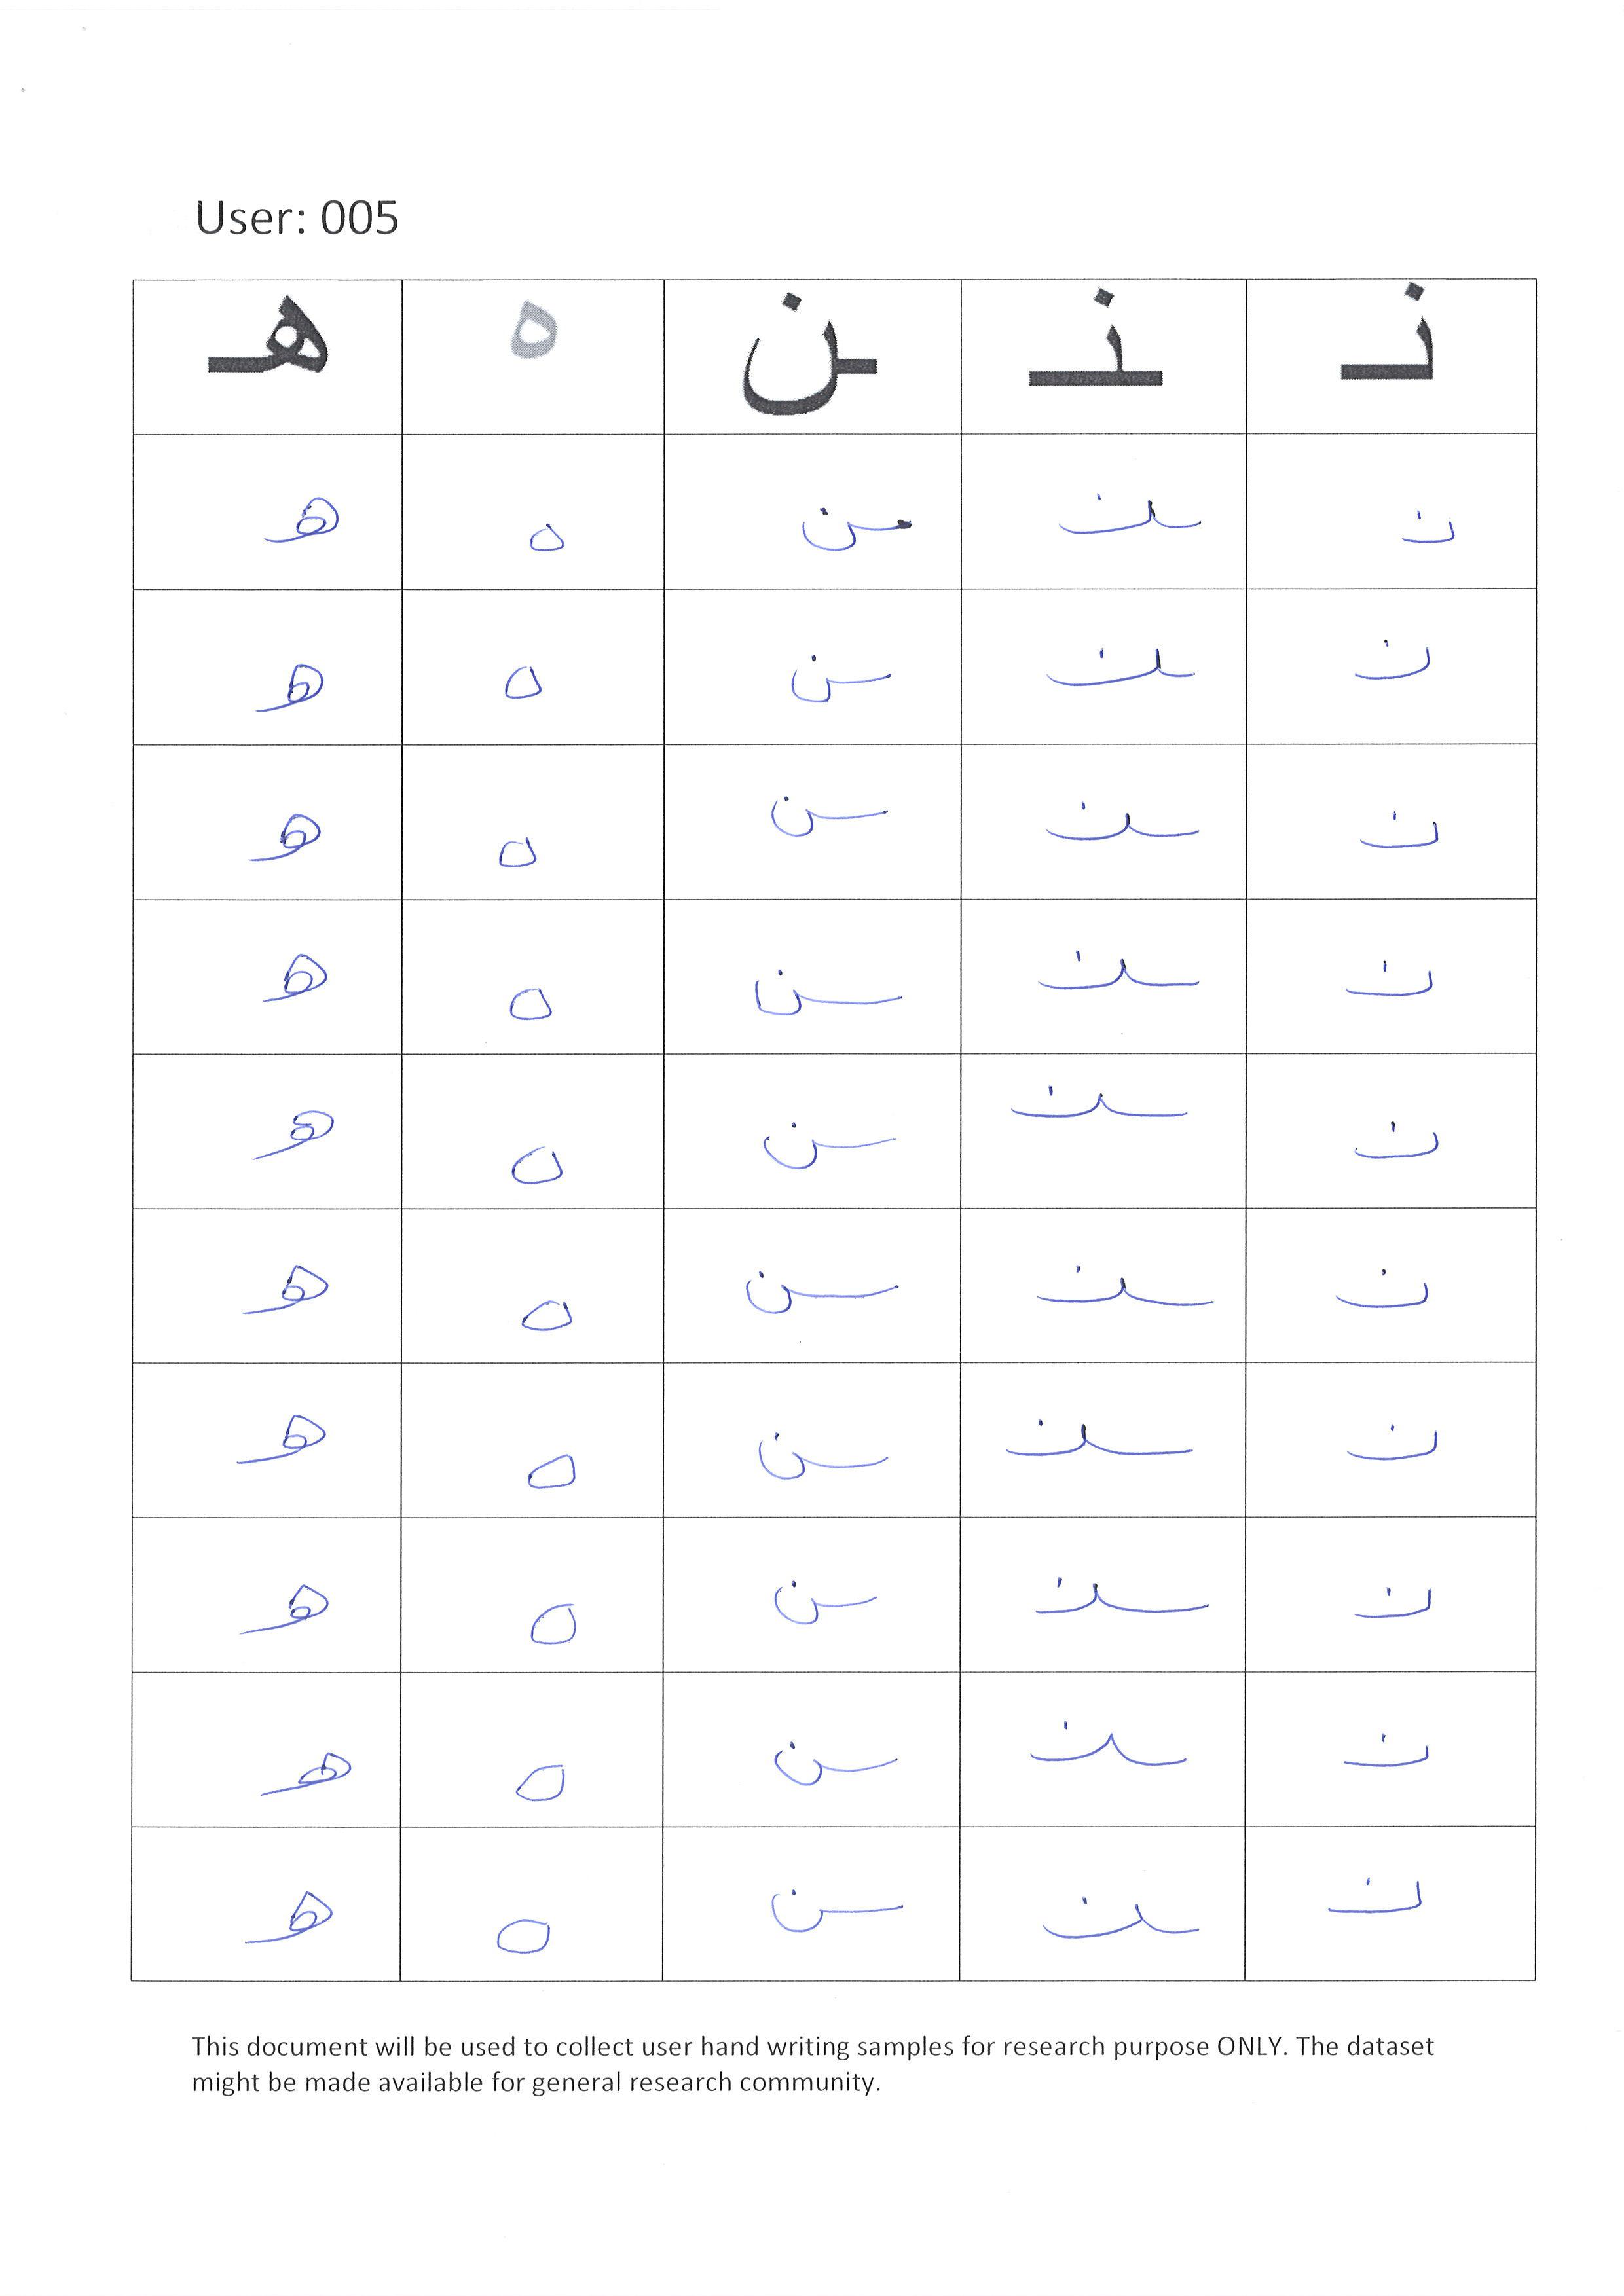 User: 005
نـ ـنـ ـن ه هـ
نـ ـنـ ـن ه هـ
نـ ـنـ ـن ه هـ
نـ ـنـ ـن ه هـ
نـ ـنـ ـن ه هـ
نـ ـنـ ـن ه هـ
نـ ـنـ ـن ه هـ
نـ ـنـ ـن ه هـ
نـ ـنـ ـن ه هـ
نـ ـنـ ـن ه هـ
نـ ـنـ ـن ه هـ
This document will be used to collect user hand writing samples for research purpose ONLY. The dataset
might be made available for general research community.